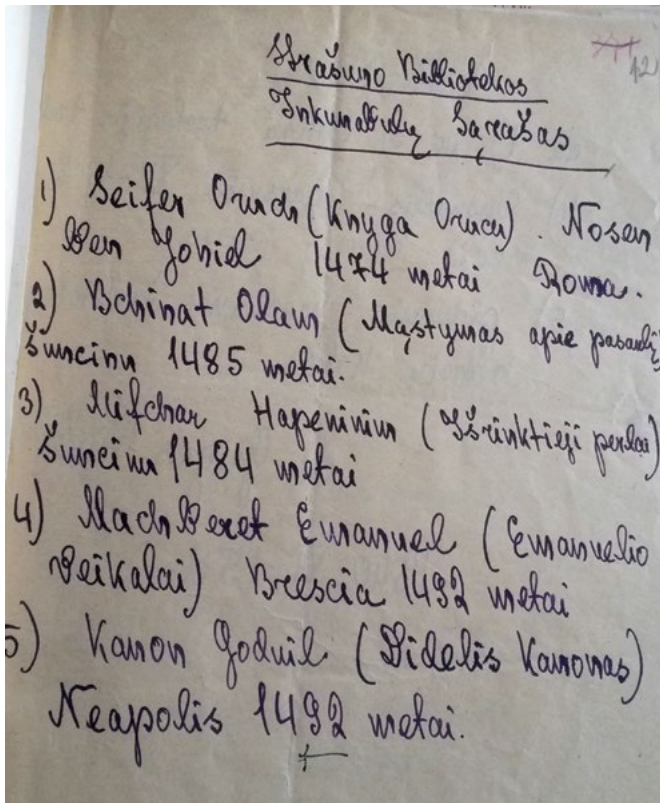 Strašuno Bibliotekos
Inkunabulų Sąrašas
12
1) Seifer Oruch (Knyga Oruch). Nosen
Ben Johiel 1474 metai Roma.
2) Bchinat Olam (Mąstymas apie pasaulį)
Šuncinu 1485 metai.
3) Mifchar Hapeninim (Išrinktieji perlai)
Šuncinu 1484 metai
4) MachBeret Emanuel (Emanuelio
Veikalai) Brescia 1492 metai
5) Kanon Godoil (Didelis Kanonas)
Neapolis 1492 metai.